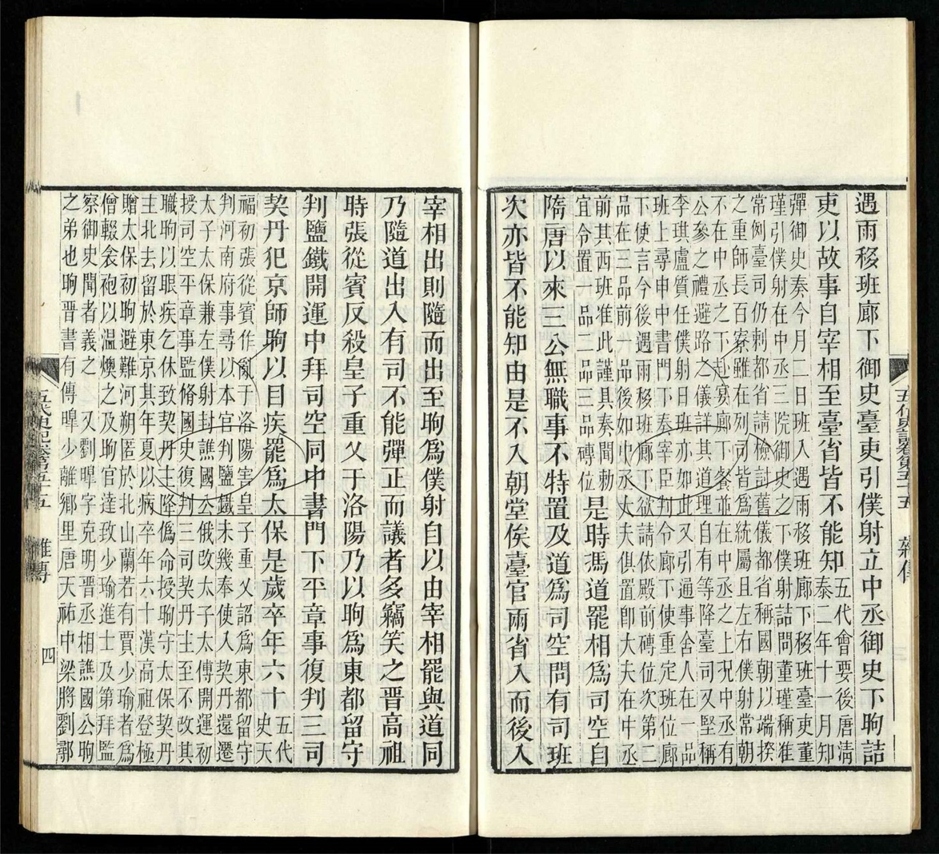 遇雨移班廊下御史臺吏引僕射立中丞御史下昫詰
吏以故事自宰相至臺省皆不能知
五代會要後唐清
泰二年十一月知
彈御史奏今月二日班入遇雨移班廊下移班臺吏董
瑾引僕射在中丞三院御史之下僕射詰問董瑾稱准
常例臺司仍刺都省請檢討舊儀都省稱國朝以端揆
之重師長百寮雖在列司皆爲統屬且左右僕射常朝
不在中丞之下赴宴廊下餐並在中丞之上況中丞有
公參之禮避路之儀詳其道理自有等降臺司又堅稱
李琪盧質任僕射日班亦如此又引通事舍人在一品
班上尋申中書門下奉宰臣判令廊下使重定班位廊
下使言今後遇雨移班廊下欲請依殿前磚位次第二
品在三品前一品後如中丞大夫俱置卽大夫在中丞
前其西班准此謹具奏聞勅
宜令置一品二品三品磚位
是時馮道罷相爲司空自
隋唐以來三公無職事不特置及道爲司空問有司班
次亦皆不能知由是不入朝堂俟臺官兩省入而後入
五代史記注卷第五十五 雜傳
宰相出則隨而出至昫爲僕射自以由宰相罷與道同
乃隨道出入有司不能彈正而議者多竊笑之晉高祖
時張從賓反殺皇子重乂于洛陽乃以昫爲東都留守
判鹽鐵開運中拜司空同中書門下平章事復判三司
契丹犯京師昫以目疾罷爲太保是歲卒年六十
五代
史天
福初張從賓作亂于洛陽害皇子重乂詔爲東都留守
判河南府事尋以本官判鹽鐵未幾奉使入契丹還遷
太子太保兼左僕射封譙國公俄改太子太傅開運初
授司空平章事監修國史復判三司契丹主至不改其
職昫以眼疾乞休致契丹主降僞命授昫守太保契丹
主北去留於東京其年夏以病卒年六十漢高祖登極
贈太保初昫避難河朔匿於北山蘭若有賈少瑜者爲
僧輟衾袍以溫燠之及昫官達致少瑜進士及第拜監
察御史聞者義之 又劉暤字克明晉丞相譙國公昫
之弟也昫晉書有傳暤少離鄉里唐天祐中梁將劉鄩
五代史記注卷第五十五 雜傳 四